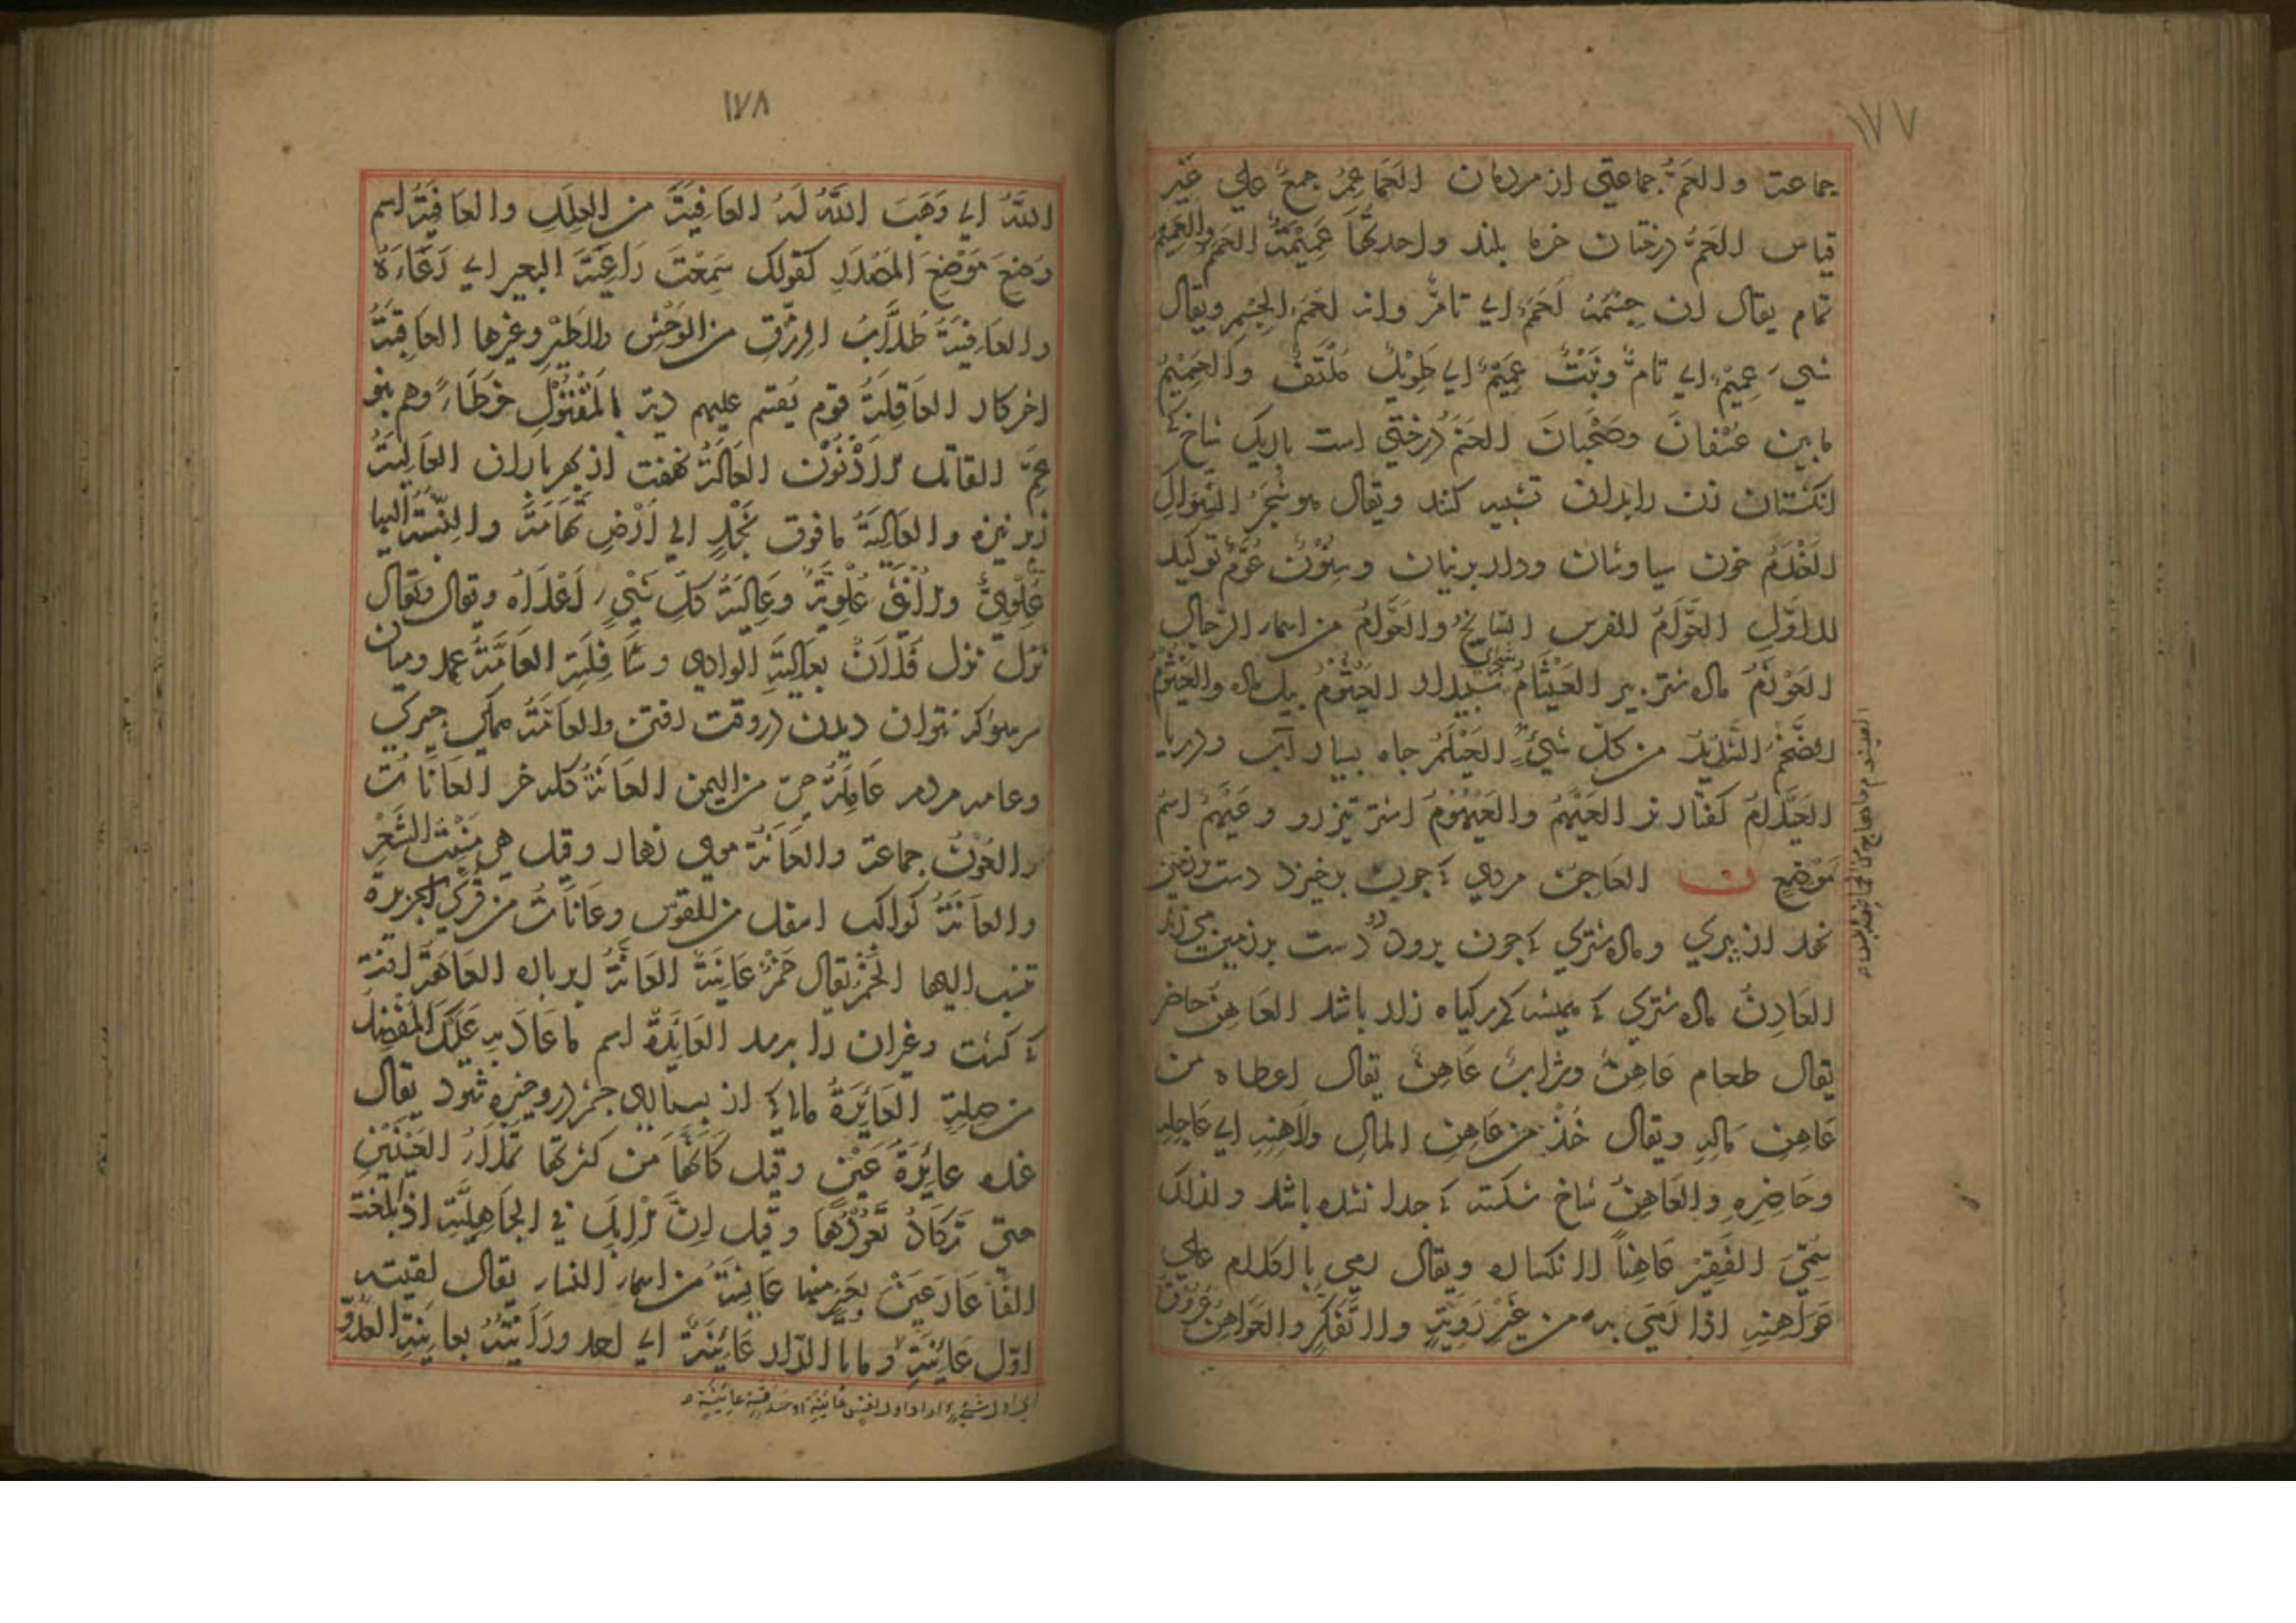 ١٧٧
جماعت والعَمُّ جماعتي از مردمان العَمَاعِمُ جمعٌ علي غير
قياس العَمُّ درختان خرما بلند واحدتها عَمِيْمَةٌ العَمَمُ والعَمِيْمُ
تمام يقال ان جِسْمَهُ لَعَمَمٌ اي تامٌّ وانه لعَمَمُ الجِسْمِ ويقال
شيء عَمِيْمٌ اي تامٌّ ونَبْتٌ عَمِيْمٌ اي طَوِيْلٌ مُلْتَفٌّ والعَمِيْمُ
ما بين عُسْفانَ وضَجْنانَ العَنَمُ درختي است باريک شاخ کي
انکشتان زن را بدان تشبيه کنند ويقال هو شَجَرُ السِّوَاكِ
العَنْدَمُ خون سياوشان ودار برنيان وسِنُوْنَ عُوَّمٌ توکيد
للاوَّلِ العَوَّامُ الفرس السَّابِحُ والعَوَّامُ من اسماء الرجال
العَوْزَمُ ماده شتر پير العَيْثَامُ شجر سپيدار العَيْثُوْمُ پيل ماده والعَيْثُوْمُ
الضَّخْمُ الشَّدِيْدُ من كلّ شيءٍ العَيْلَمُ چاه بسيار آب ودريا
العَيْلَامُ کفتار نر العَيْهَمُ والعَيْهُوْمُ اشتر تيزرو وعَيْهَمٌ اسمُ
مَوْضِعٍ ن العَاجِنُ مردي کي چون برخيزد دست بر زمين
نهد از پيري وماده شتري کي چون برود دو دست بر زمين مي زند
العَادِنُ ماده شتري کي هميشه در کياه زار باشد العَاهِنُ حاضر
يقال طعام عَاهِنٌ وشرابٌ عَاهِنٌ يقال اعطاه من
عَاهِنِ مَالِهِ ويقال خُذْ من عَاهِنِ المالِ وآهِنِهِ اي عَاجِلِهِ
وحَاضِرِهِ والعَاهِنُ شاخ شکسته کي جدا نشده باشد ولذلک
سُمِّيَ الفَقِيْرُ عَاهِناً لانكساره ويقال رمي بالكلام علي
عَوَاهِنِهِ اذا رَمَي به من غَيْرِ رَوِيَّةٍ ولا تَفَكُّرٍ والعَوَاهِنُ عُرُوْقٌ
١٧٨
اللهُ اي وَهَبَ اللهُ لَهُ العَافِيَةَ من العِلَلِ والعَافِيَةُ اسم
وُضِعَ مَوْضِعَ المَصْدَرِ كقولك سَمِعْتَ رَاغِيَةَ البعير اي رُغَاءَهُ
والعَافِيَةُ طُلَّابُ الرِّزْقِ من الوَحْشِ والطَيْرِ وغيرها العَاقِبَةُ
اخر کار العَاقِلَةُ قوم يُقسم عليهم دية المَقْتُوْلِ خَطَاءً وهم بنو
عَمِّ القاتل الاَدْنَوْنَ العَالَةُ کهفت از بهر باران العَالِيَةُ
زبر نيزه والعَالِيَةُ ما فوق نَجْدٍ الي اَرْضِ تِهَامَةَ والنِّسْبَةُ اليها
عُلْوِيٌّ والاُنْثَي عُلْوِيَّةٌ وعَالِيَةُ كلّ شَيْءٍ اَعْلَاهُ ويقال
نزل نزل فُلَانٌ بعَالِيَةِ الوادي وسَافِلَتِهِ العَامَّةُ
سر سوار کي بتوان ديدن در وقت رفتن والعَامَّةُ همکي چيزکي
وعامه مردم عَامِلَةُ حيّ من اليمن العَانَةُ کله خر العَانَاتُ
والعُوْنُ جماعة والعَانَةُ موي زهار وقيل هي مَنْبَتُ الشَّعْرِ
والعَانَةُ كواكب اسفل من القوس وعَانَاتٌ من قُرَي الجزيرة
تنسب اليها الخَمْرُ يقال خَمْرٌ عَانِيَةٌ العَاهَةُ آفتي
کي کشت وغيران را برسد العَائِدَةُ اسم ما عَادَ به عَلَيْكَ المُفْضِلُ
من صِلَةٍ العَائِرَةُ مالي کي از بسياري چشم درو خيره شود يقال
عنده عَائِرَةُ عَيْنٍ وقيل كَاَنَّهَا من كثرتها تَمْلَاُ العَيْنَيْنِ
حتي تَكَادُ تَعُوْرُهَا وقيل اِنَّ الاِبِلَ في الجَاهِلِيَّةِ اذا بلغت
الفاً عَارَ عَيْنَ بعيرٍ منها عَائِنَةُ من اسماء النساء يقال لقيته
اوّل عَائِنَةٍ وما بالدّار عَائِنَةٌ اي احد ورَاَيْتُهُ بعَائِنَةِ العَدُوِّ